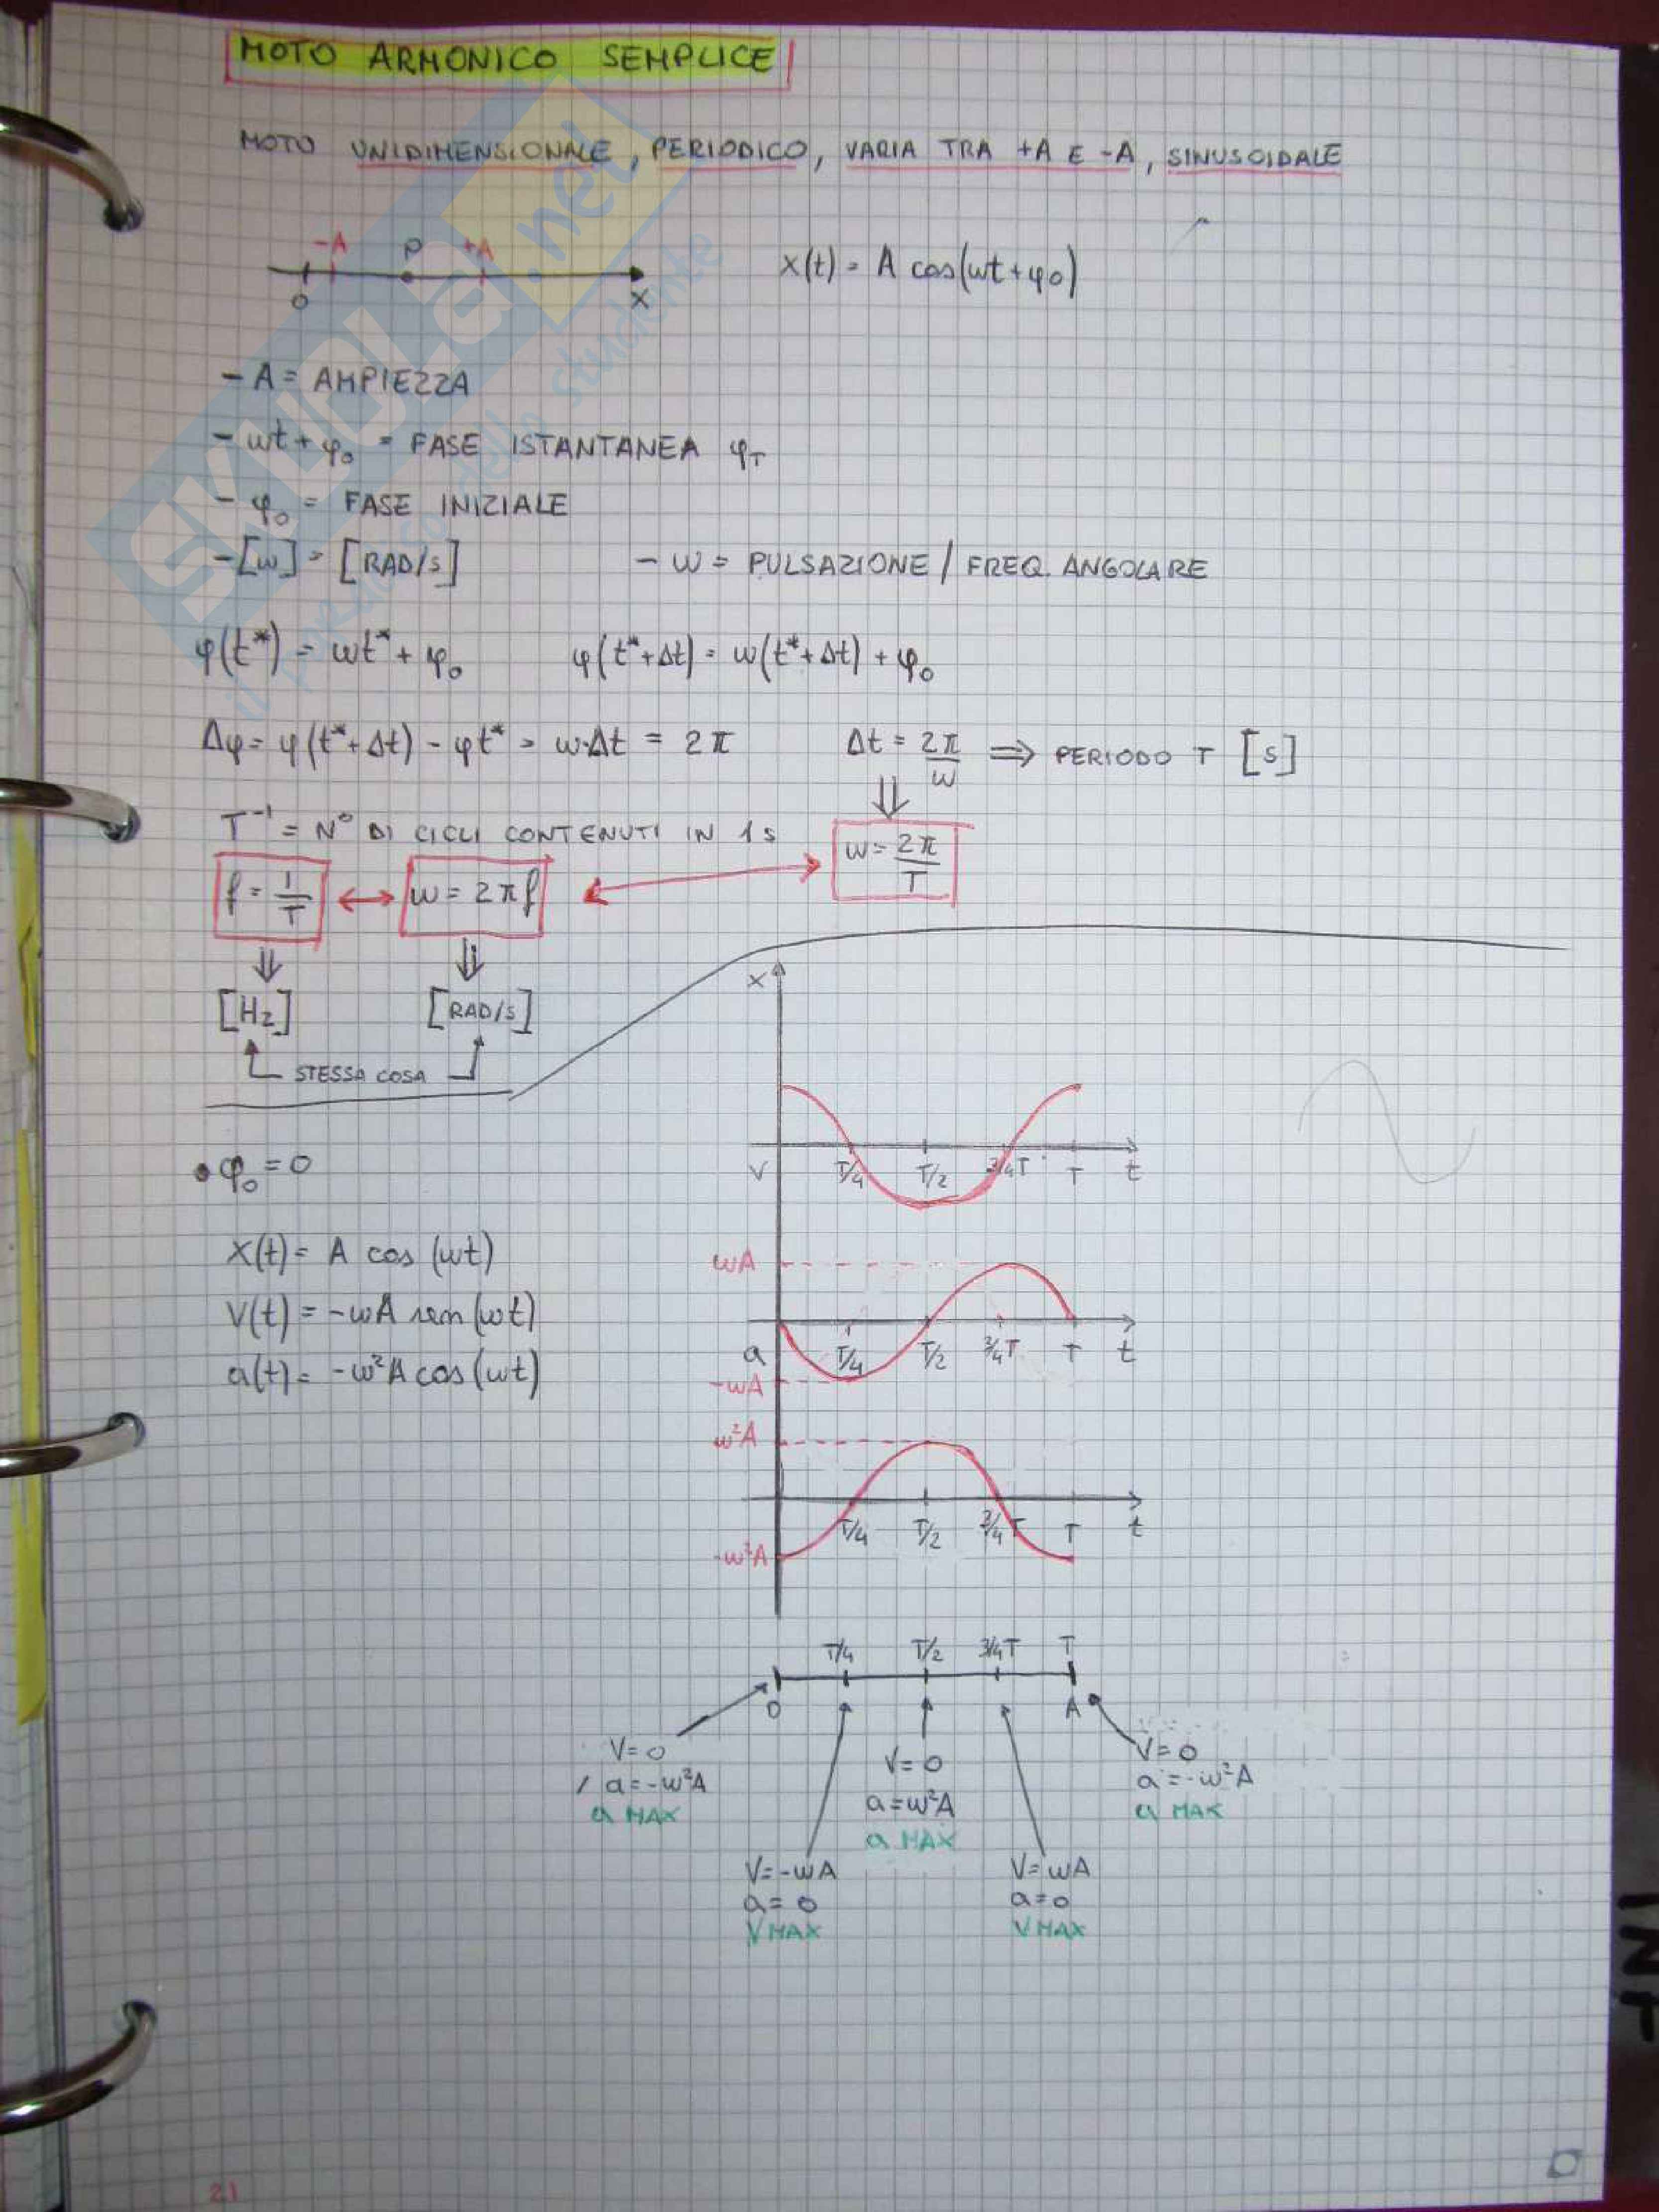 MOTO ARMONICO SEMPLICE
MOTO UNIDIMENSIONALE, PERIODICO, VARIA TRA +A E -A, SINUSOIDALE
-A P +A
O X
x(t) = A cos(ωt+φ0)
- A = AMPIEZZA
- ωt+φ0 = FASE ISTANTANEA φT
- φ0 = FASE INIZIALE
- [ω] = [RAD/s] - ω = PULSAZIONE / FREQ. ANGOLARE
φ(t*) = ωt* + φ0 φ(t*+Δt) = ω(t*+Δt) + φ0
Δφ = φ(t*+Δt) - φt* = ω·Δt = 2π Δt = 2π/ω ⇒ PERIODO T [s]
⇓
T⁻¹ = N° DI CICLI CONTENUTI IN 1s
f = 1/T ↔ ω = 2πf ↔ ω = 2π/T
⇓ ⇓
[Hz] [RAD/s]
STESSA COSA
x
T/4 T/2 3/4T T t
• φ0 = 0
x(t) = A cos (ωt)
v(t) = -ωA sen (ωt)
a(t) = -ω²A cos (ωt)
V
ωA
T/4 T/2 3/4T T t
-ωA
a
ω²A
T/4 T/2 3/4T T t
-ω²A
T/4 T/2 3/4T T
O A
V=0
a=-ω²A
a MAX
V=-ωA
a=0
V MAX
V=0
a=ω²A
a MAX
V=ωA
a=0
V MAX
V=0
a=-ω²A
a MAX
21
SKUOLa.net